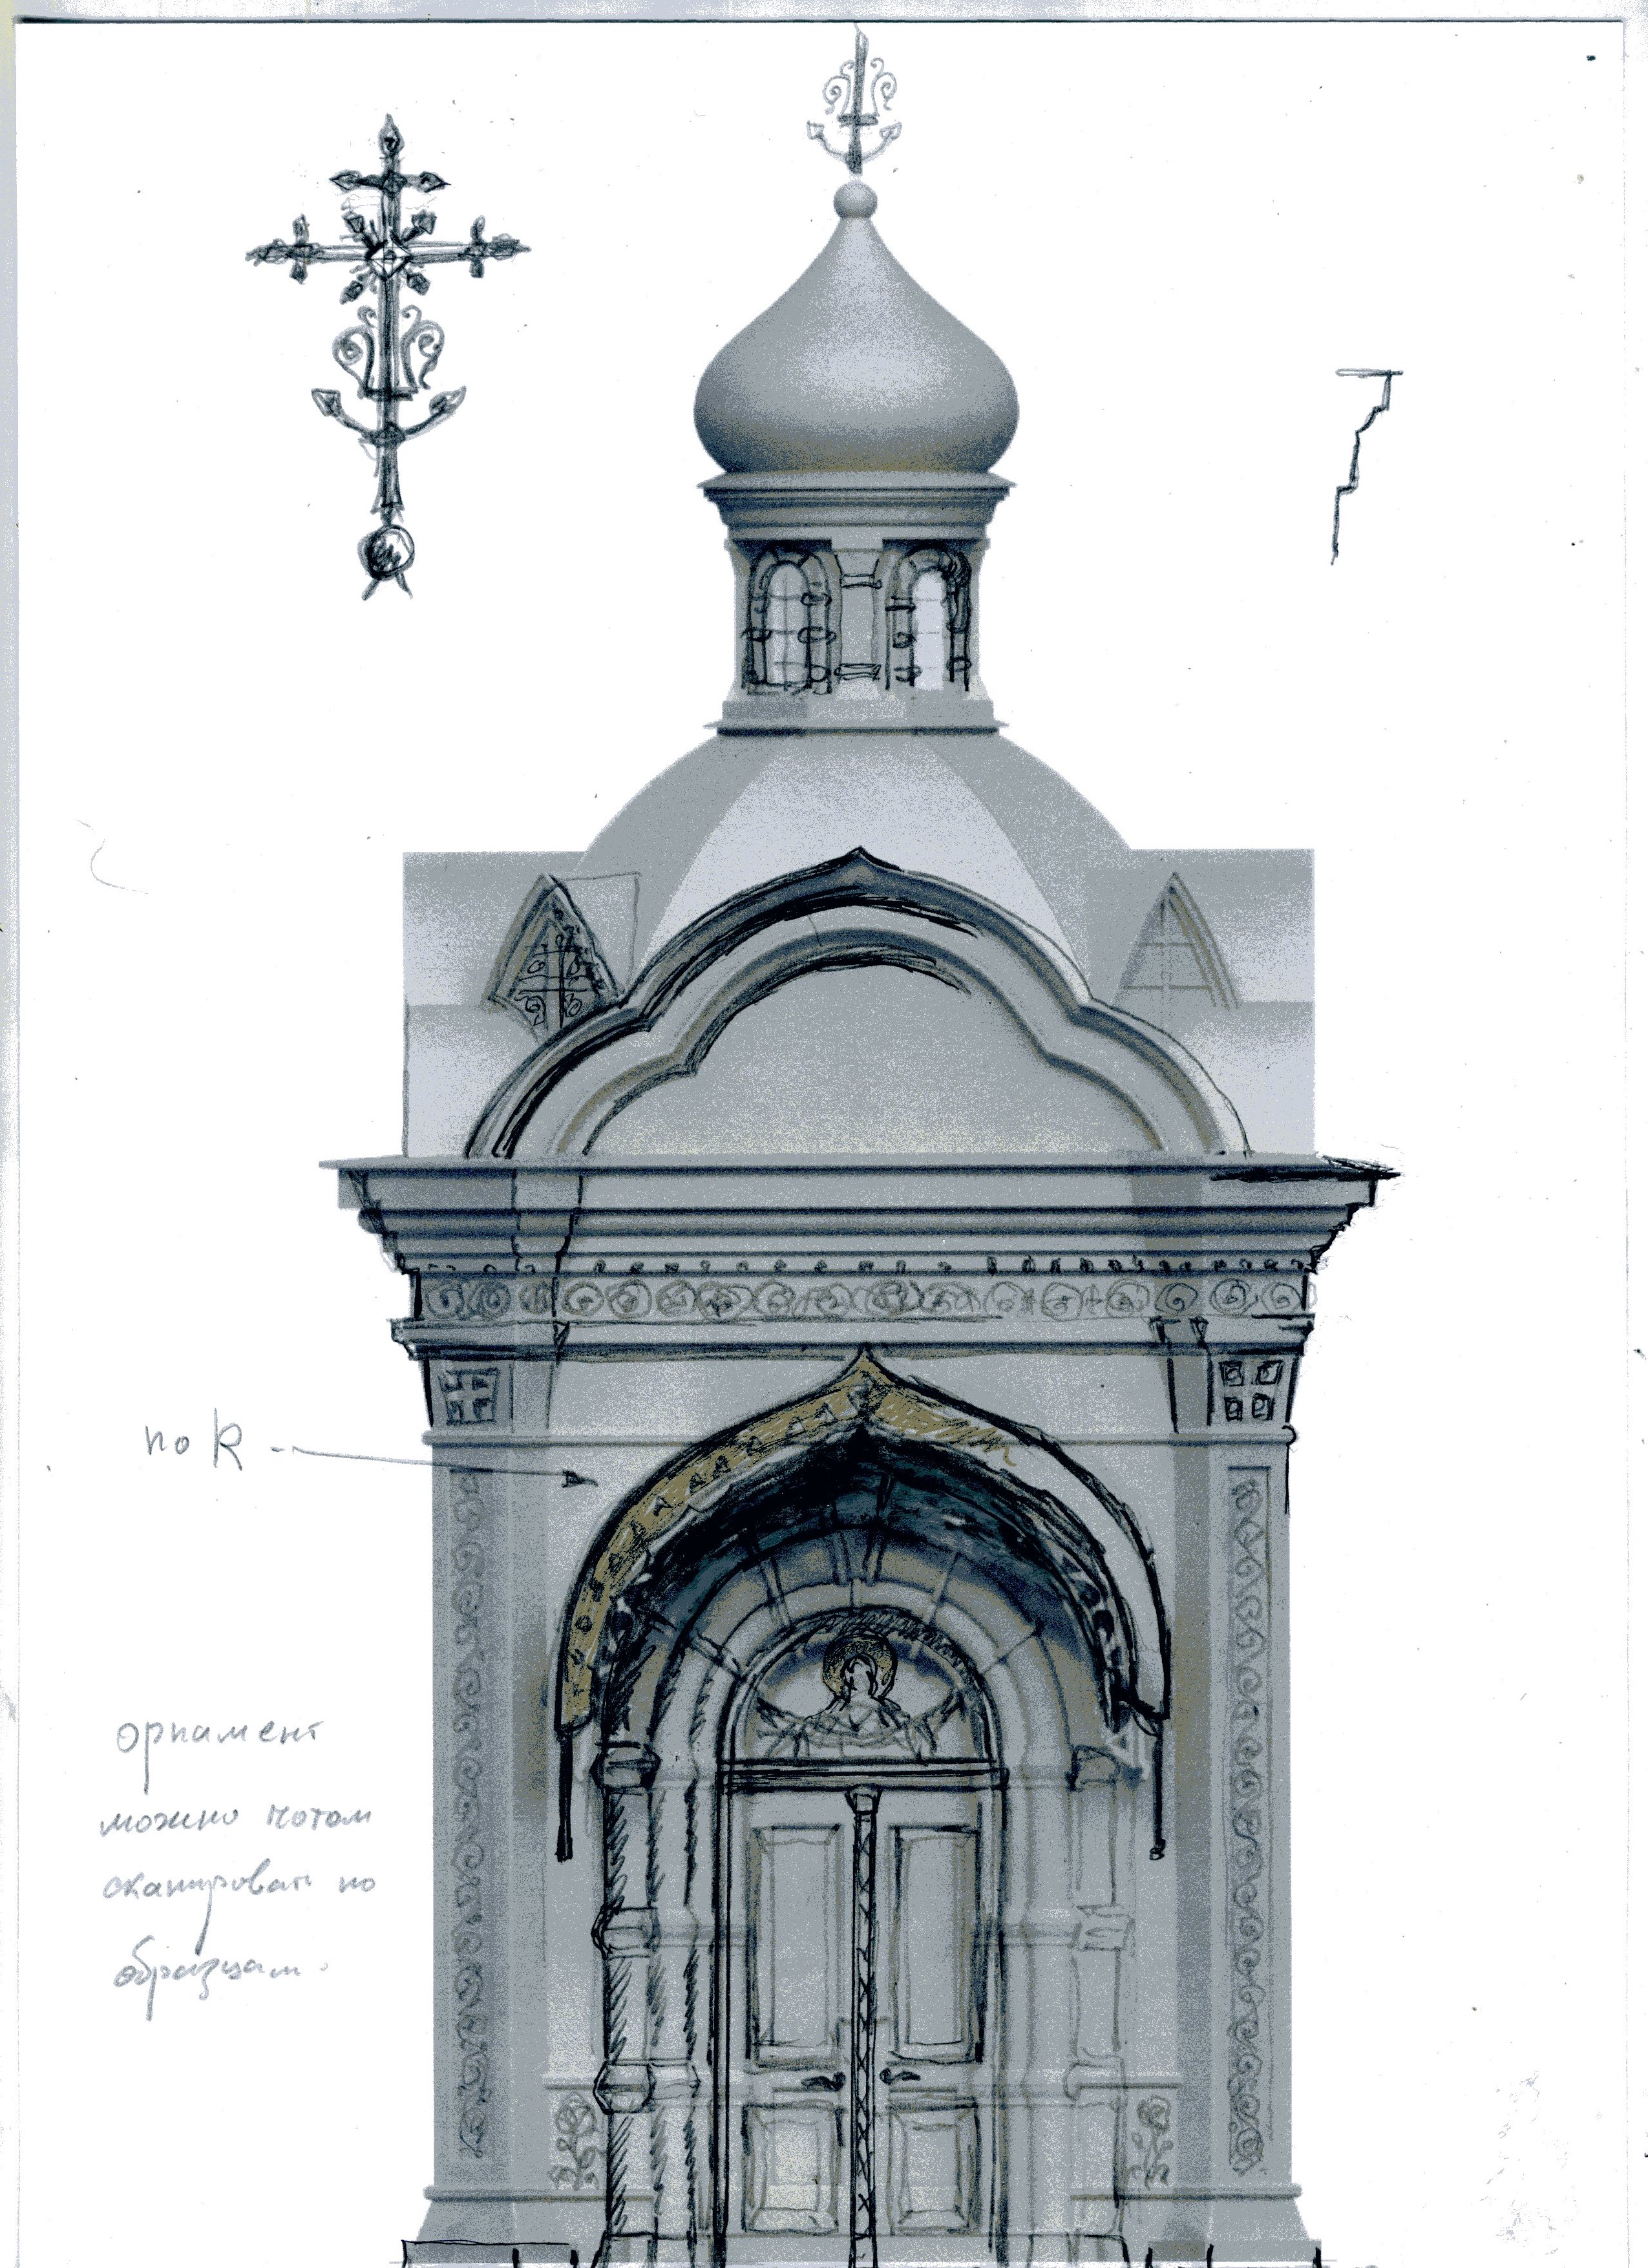 по К
орнамент
можно потом
сканировать по
образцам.